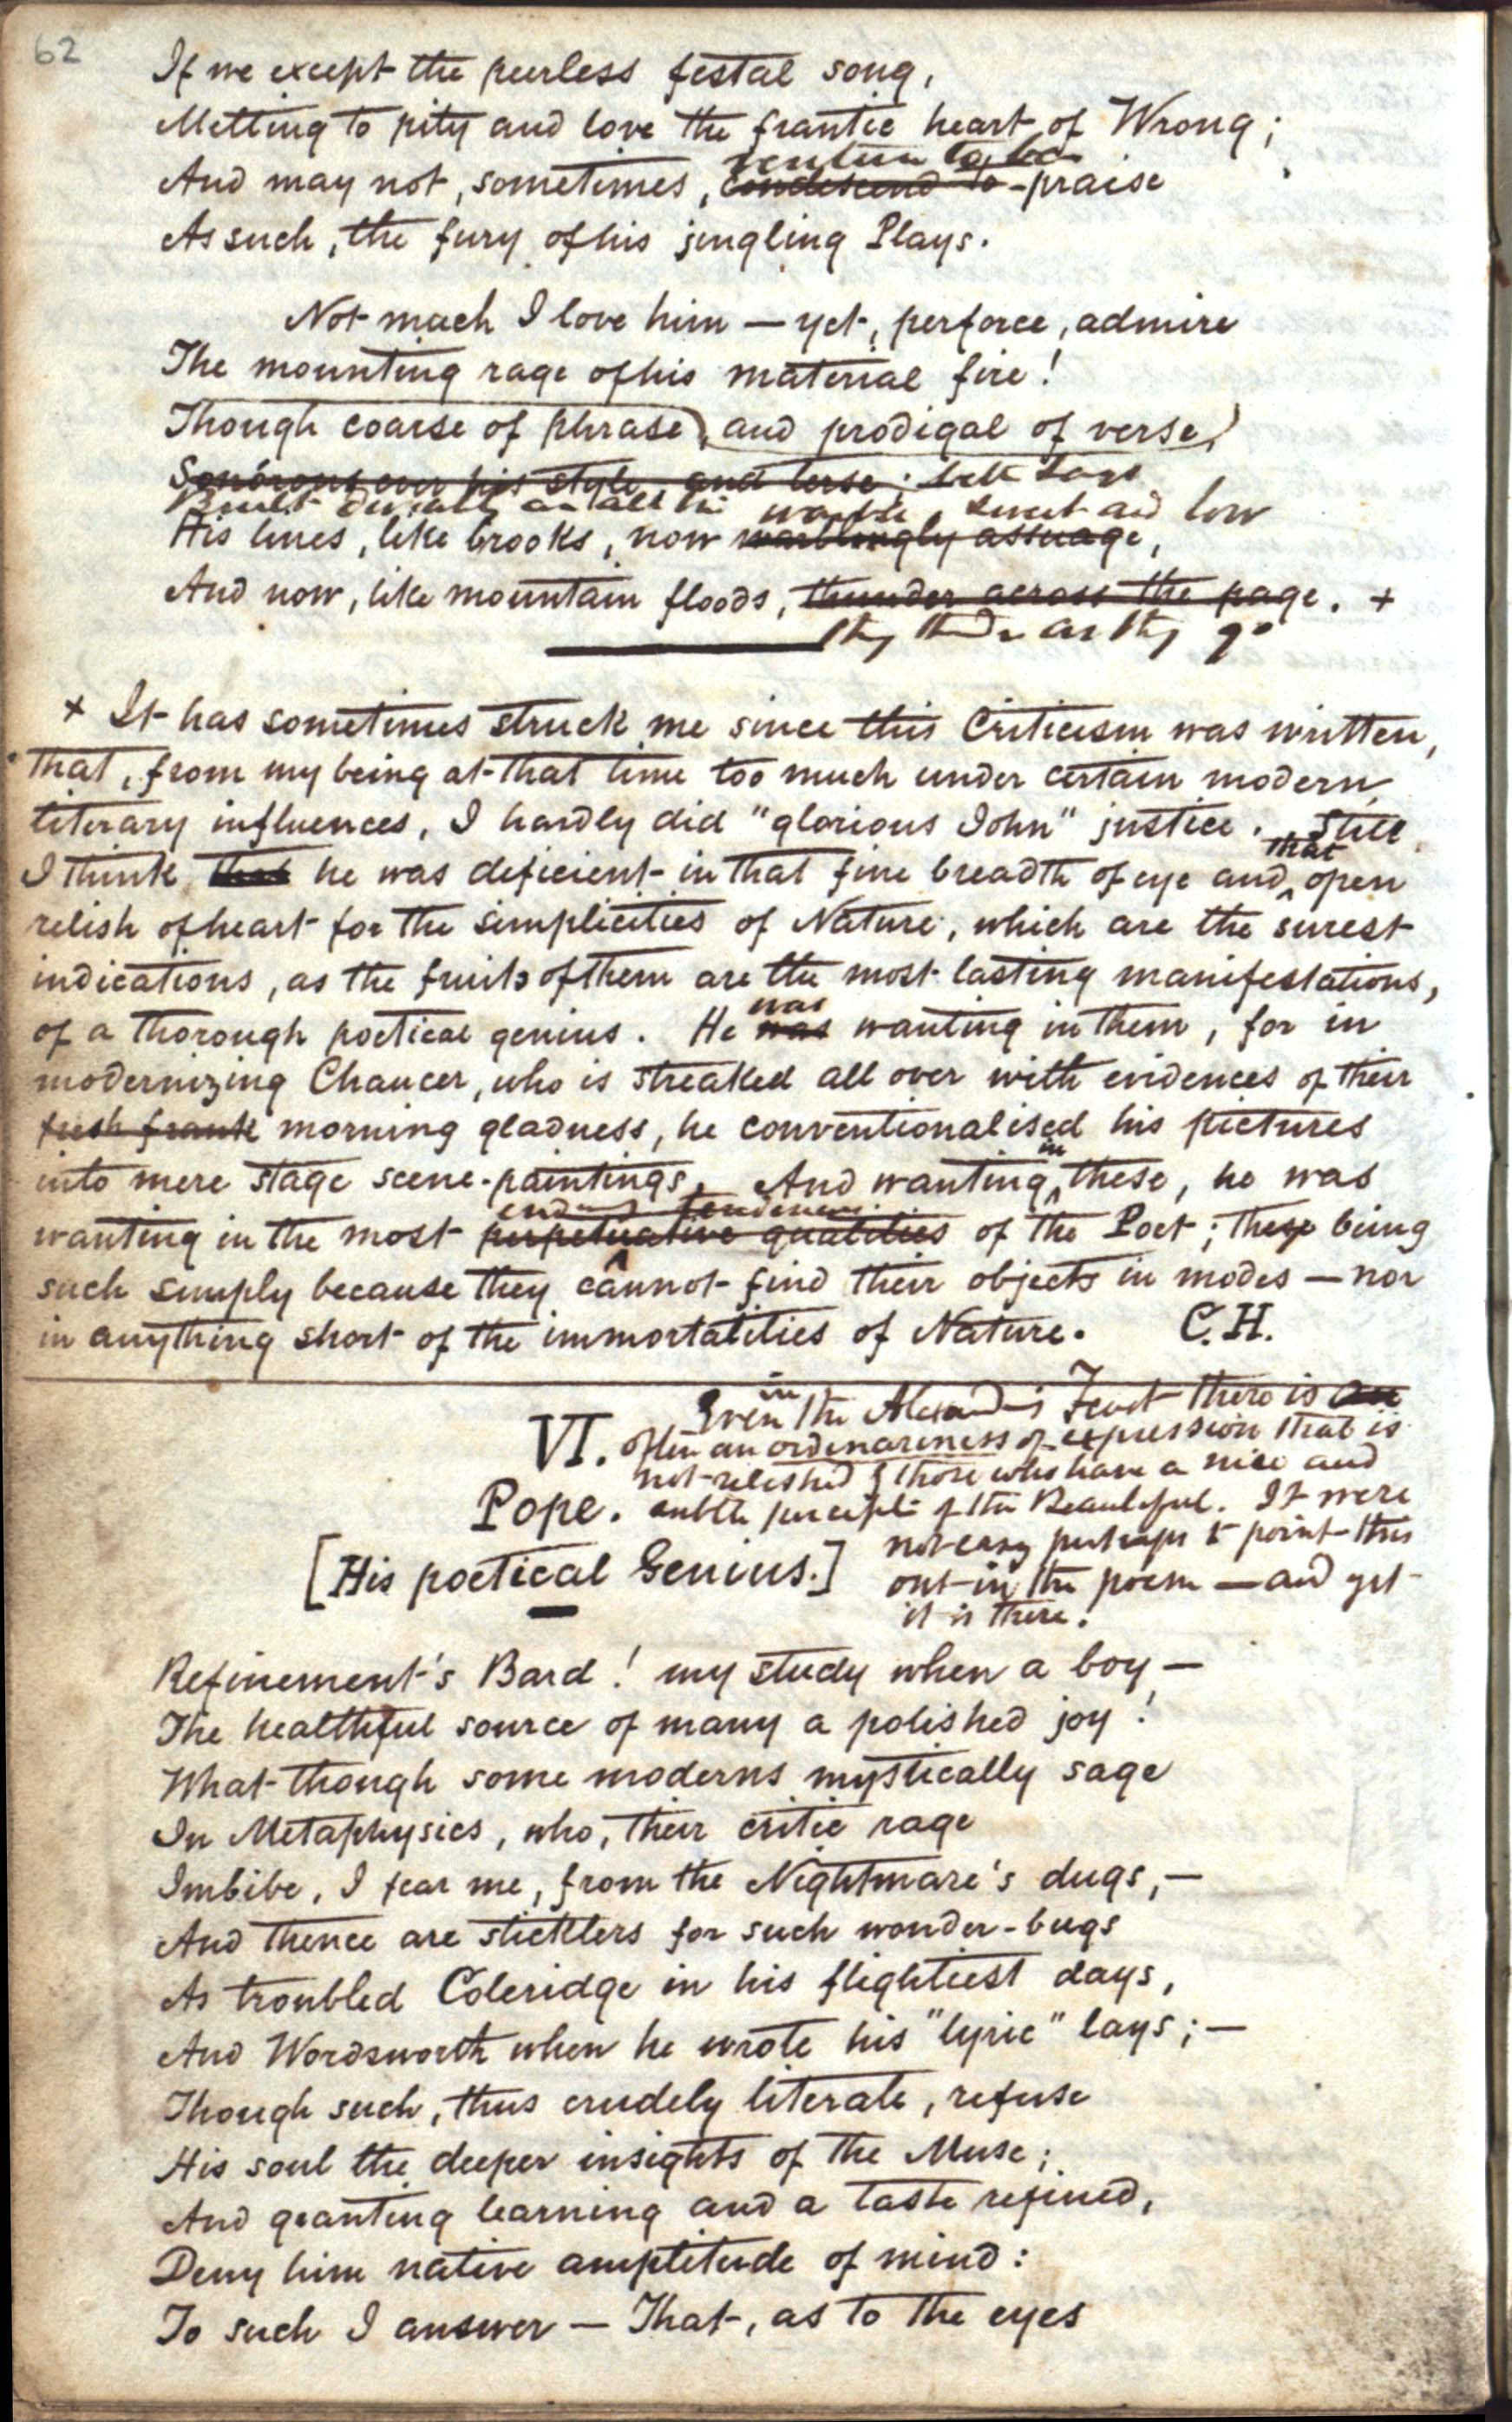 62
If we except the peerless festal song,
Melting to pity and love the frantic heart of Wrong;
venture to be
And may not, sometimes, condescend to praise
As such, the fury of his jingling Plays.
Not much I love him — yet, perforce, admire
The mounting rage of his material fire!
Though coarse of phrase, and prodigal of verse,
Sonorous ever his style, and terse;
warble, sweet and low
His lines, like brooks, now warblingly assuage,
And now, like mountain floods, thunder across the page. +
they thunder as they go
+ It has sometimes struck me since this Criticism was written,
that, from my being at that time too much under certain modern
literary influences, I hardly did "glorious John" justice. Still
that
I think that he was deficient in that fine breadth of eye and ^ open
relish of heart for the simplicities of Nature, which are the surest
indications, as the fruits of them are the most lasting manifestations,
was
of a thorough poetical genius. He was wanting in them, for in
modernizing Chaucer, who is streaked all over with evidences of their
fresh frank morning gladness, he conventionalised his pictures
in
into mere stage scene-paintings. And wanting ^ these, he was
enduring tendencies
wanting in the most perpetuative qualities of the Poet; these being
such simply because they cannot find their objects in modes — nor
in anything short of the immortalities of Nature. C.H.
Even in the Alexander's Feast there is an
VI. often an ordinariness of expression that is
not relished by those who have a nice and
Pope. subtle perception of the Beautiful. It were
not easy perhaps to point this
[His poetical Genius.] out in the poem — and yet
it is there.
Refinement's Bard! my study when a boy —
The healthful source of many a polished joy!
What though some moderns mystically sage
In Metaphysics, who, their critic rage
Imbibe, I fear me, from the Nightmare's dugs, —
And thence are sticklers for such wonder-bugs
As troubled Coleridge in his flightiest days,
And Wordsworth when he wrote his "lyric" lays; —
Though such, thus crudely literate, refuse
His soul the deeper insights of the Muse;
And granting learning and a taste refined,
Deny him native amplitude of mind:
To such I answer — That, as to the eyes